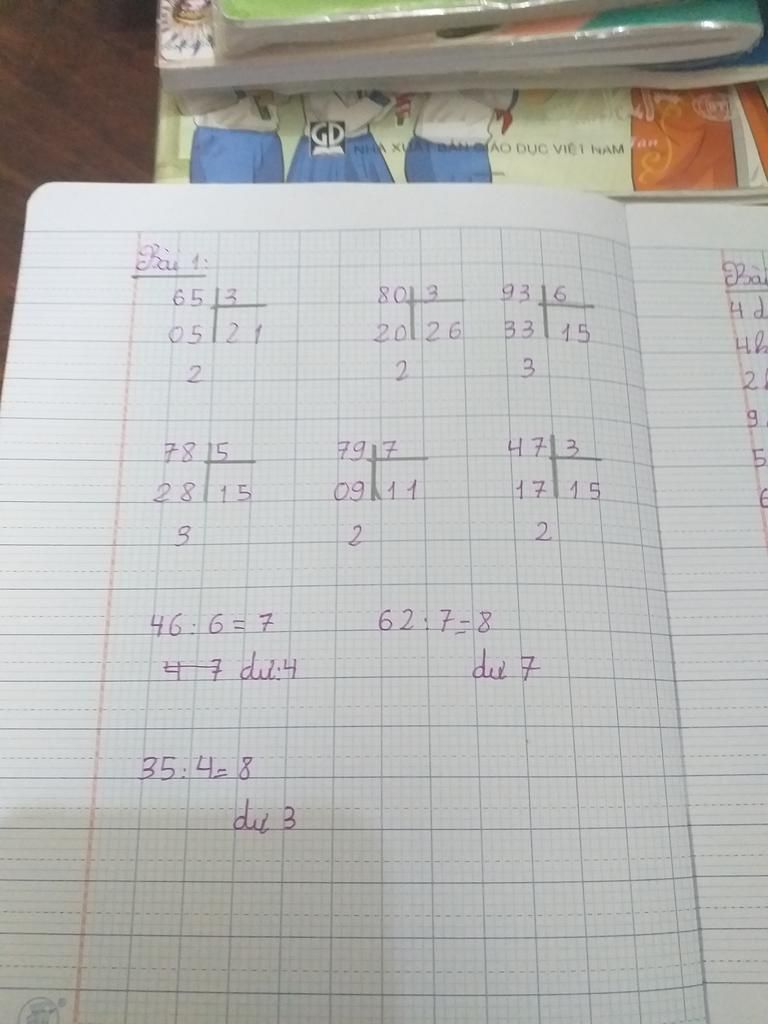 GD NHÀ XUẤT BẢN GIÁO DỤC VIỆT NAM
Bài 1:
65 3 80 3 93 6
05 21 20 26 33 15
2 2 3
78 5 79 7 47 3
28 15 09 11 17 15
3 2 2
46 : 6 = 7 62 : 7 = 8
4 7 dư: 4 dư 7
35 : 4 = 8
dư 3
Bài
4 d
4
2
9
5
6